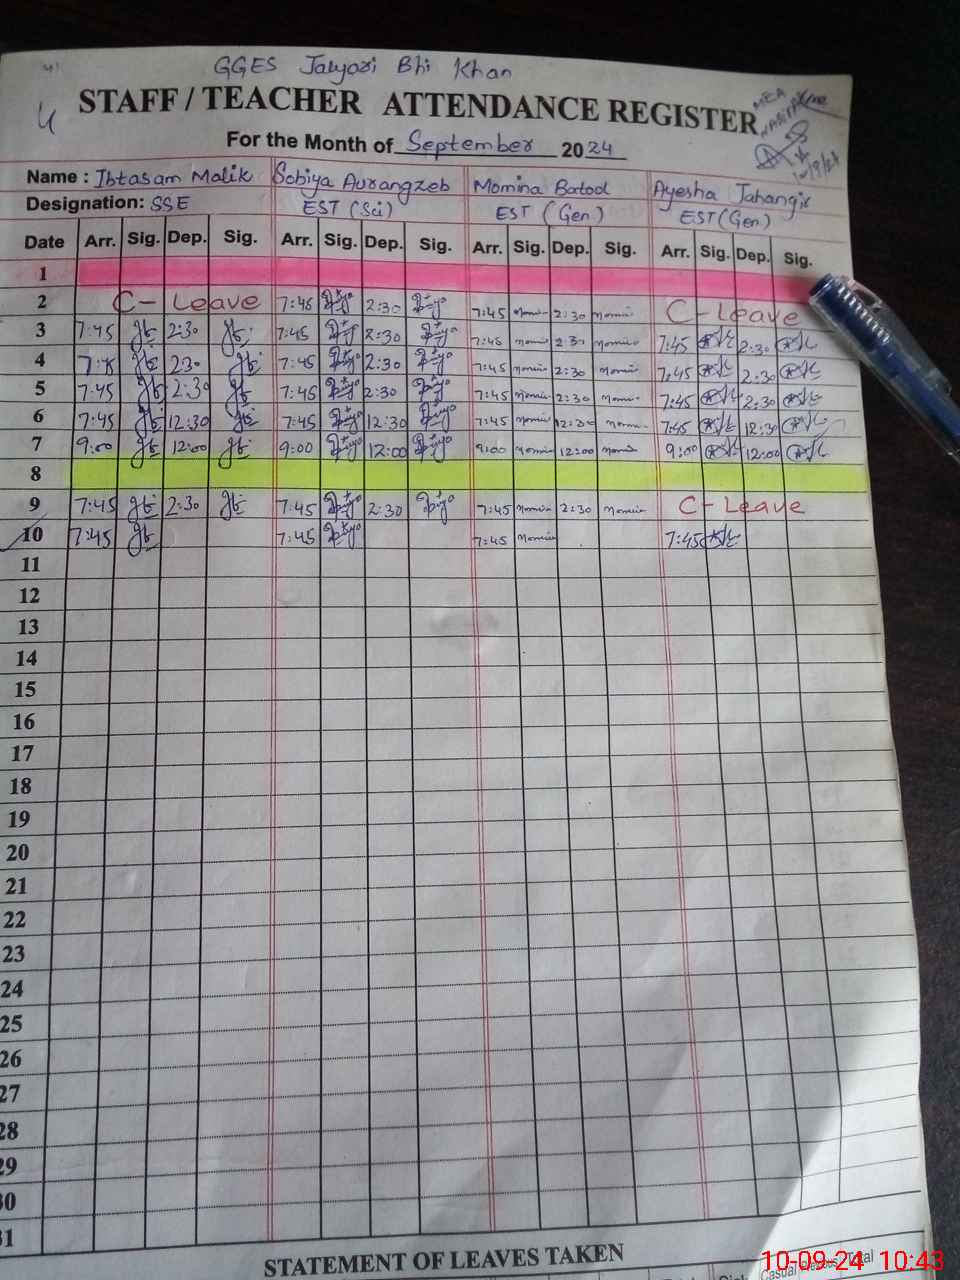 GGES Jalyari Bhi Khan
STAFF / TEACHER ATTENDANCE REGISTER
MEA
For the Month of September 2024
Name : Ibtasam Malik Sobiya Aurangzeb Momina Batool Ayesha Jahangir
Designation: SSE EST (Sci) EST (Gen) EST (Gen)
Date Arr. Sig. Dep. Sig. Arr. Sig. Dep. Sig. Arr. Sig. Dep. Sig. Arr. Sig. Dep. Sig.
1
2 C- Leave 7:45 2:30 7:45 Momina 2:30 Momina C- Leave
3 7:45 2:30 7:45 2:30 7:45 Momina 2:30 Momina 7:45 2:30
4 7:45 2:30 7:45 2:30 7:45 Momina 2:30 Momina 7:45 2:30
5 7:45 2:30 7:45 2:30 7:45 Momina 2:30 Momina 7:45 2:30
6 7:45 12:30 7:45 12:30 7:45 Momina 12:30 Momina 7:45 12:30
7 9:00 12:00 9:00 12:00 9:00 Momina 12:00 Momina 9:00 12:00
8
9 7:45 2:30 7:45 2:30 7:45 Momina 2:30 Momina C- Leave
10 7:45 7:45 7:45 Momina 7:45
11
12
13
14
15
16
17
18
19
20
21
22
23
24
25
26
27
28
29
30
31
STATEMENT OF LEAVES TAKEN
Casual Total
10-09-24 10:43